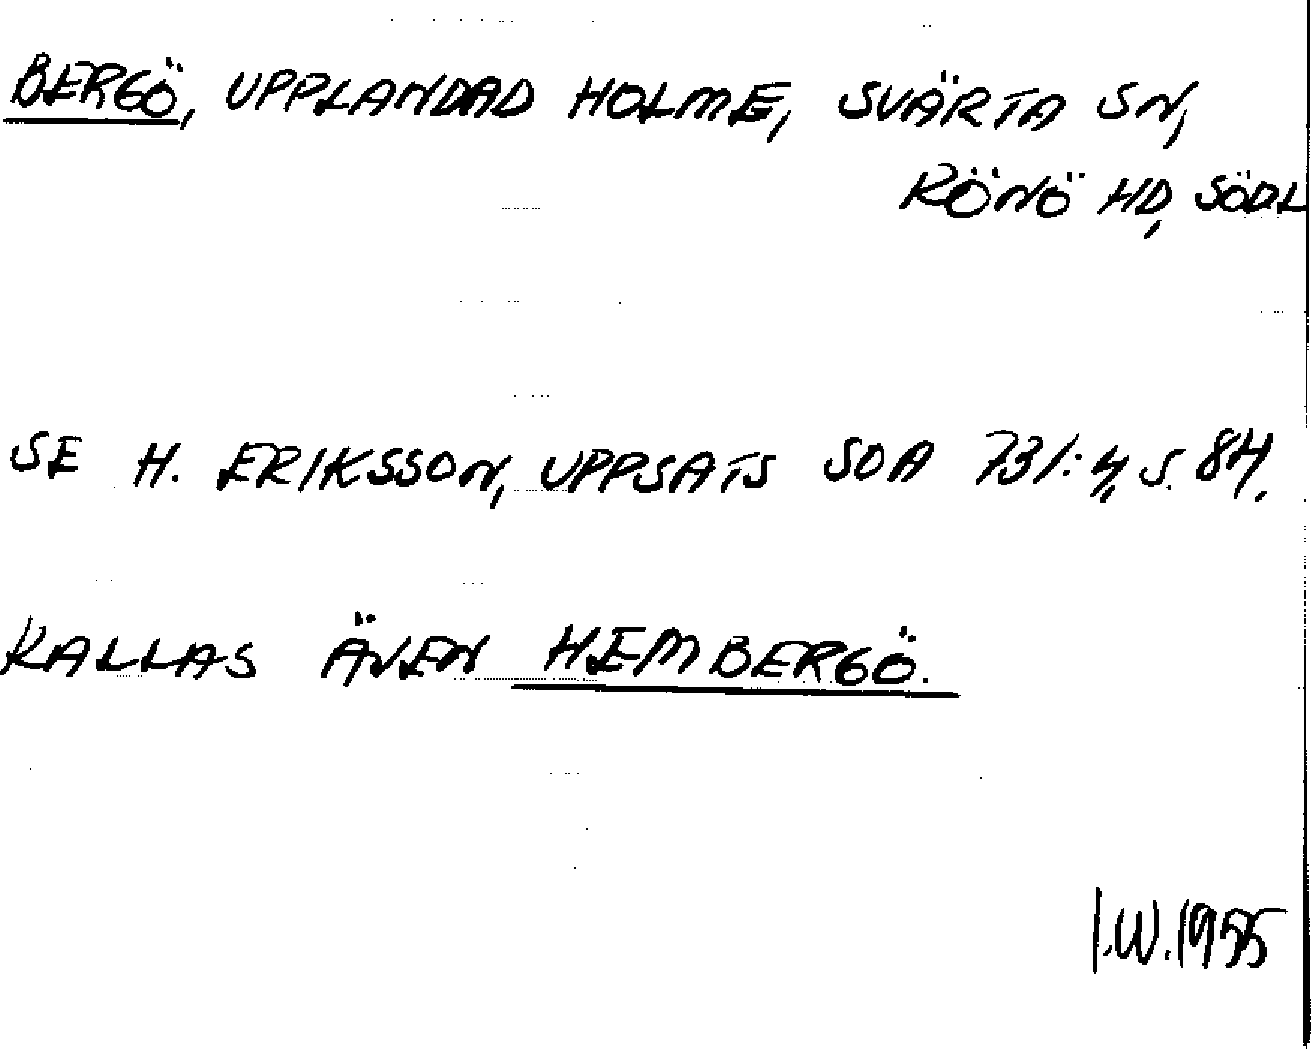 BERGÖ, UPPLANDAD HOLME, SVÄRTA SN,
RÖNÖ HD, SÖDL
SE H. ERIKSSON, UPPSATS SOA 731:4, S. 84.
KALLAS ÄVEN HEMBERGÖ.
I.W. 1955